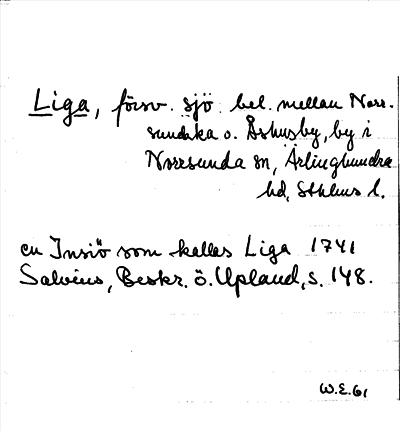 Liga, försv. sjö bel. mellan Norr-
sundaka o. Åshusby, by i
Norrsunda sn, Ärlinghundra
hd, Sthlms l.
en Insiö som kallas Liga 1741
Salvius, Beskr. ö. Upland, s. 148.
W.E. 61